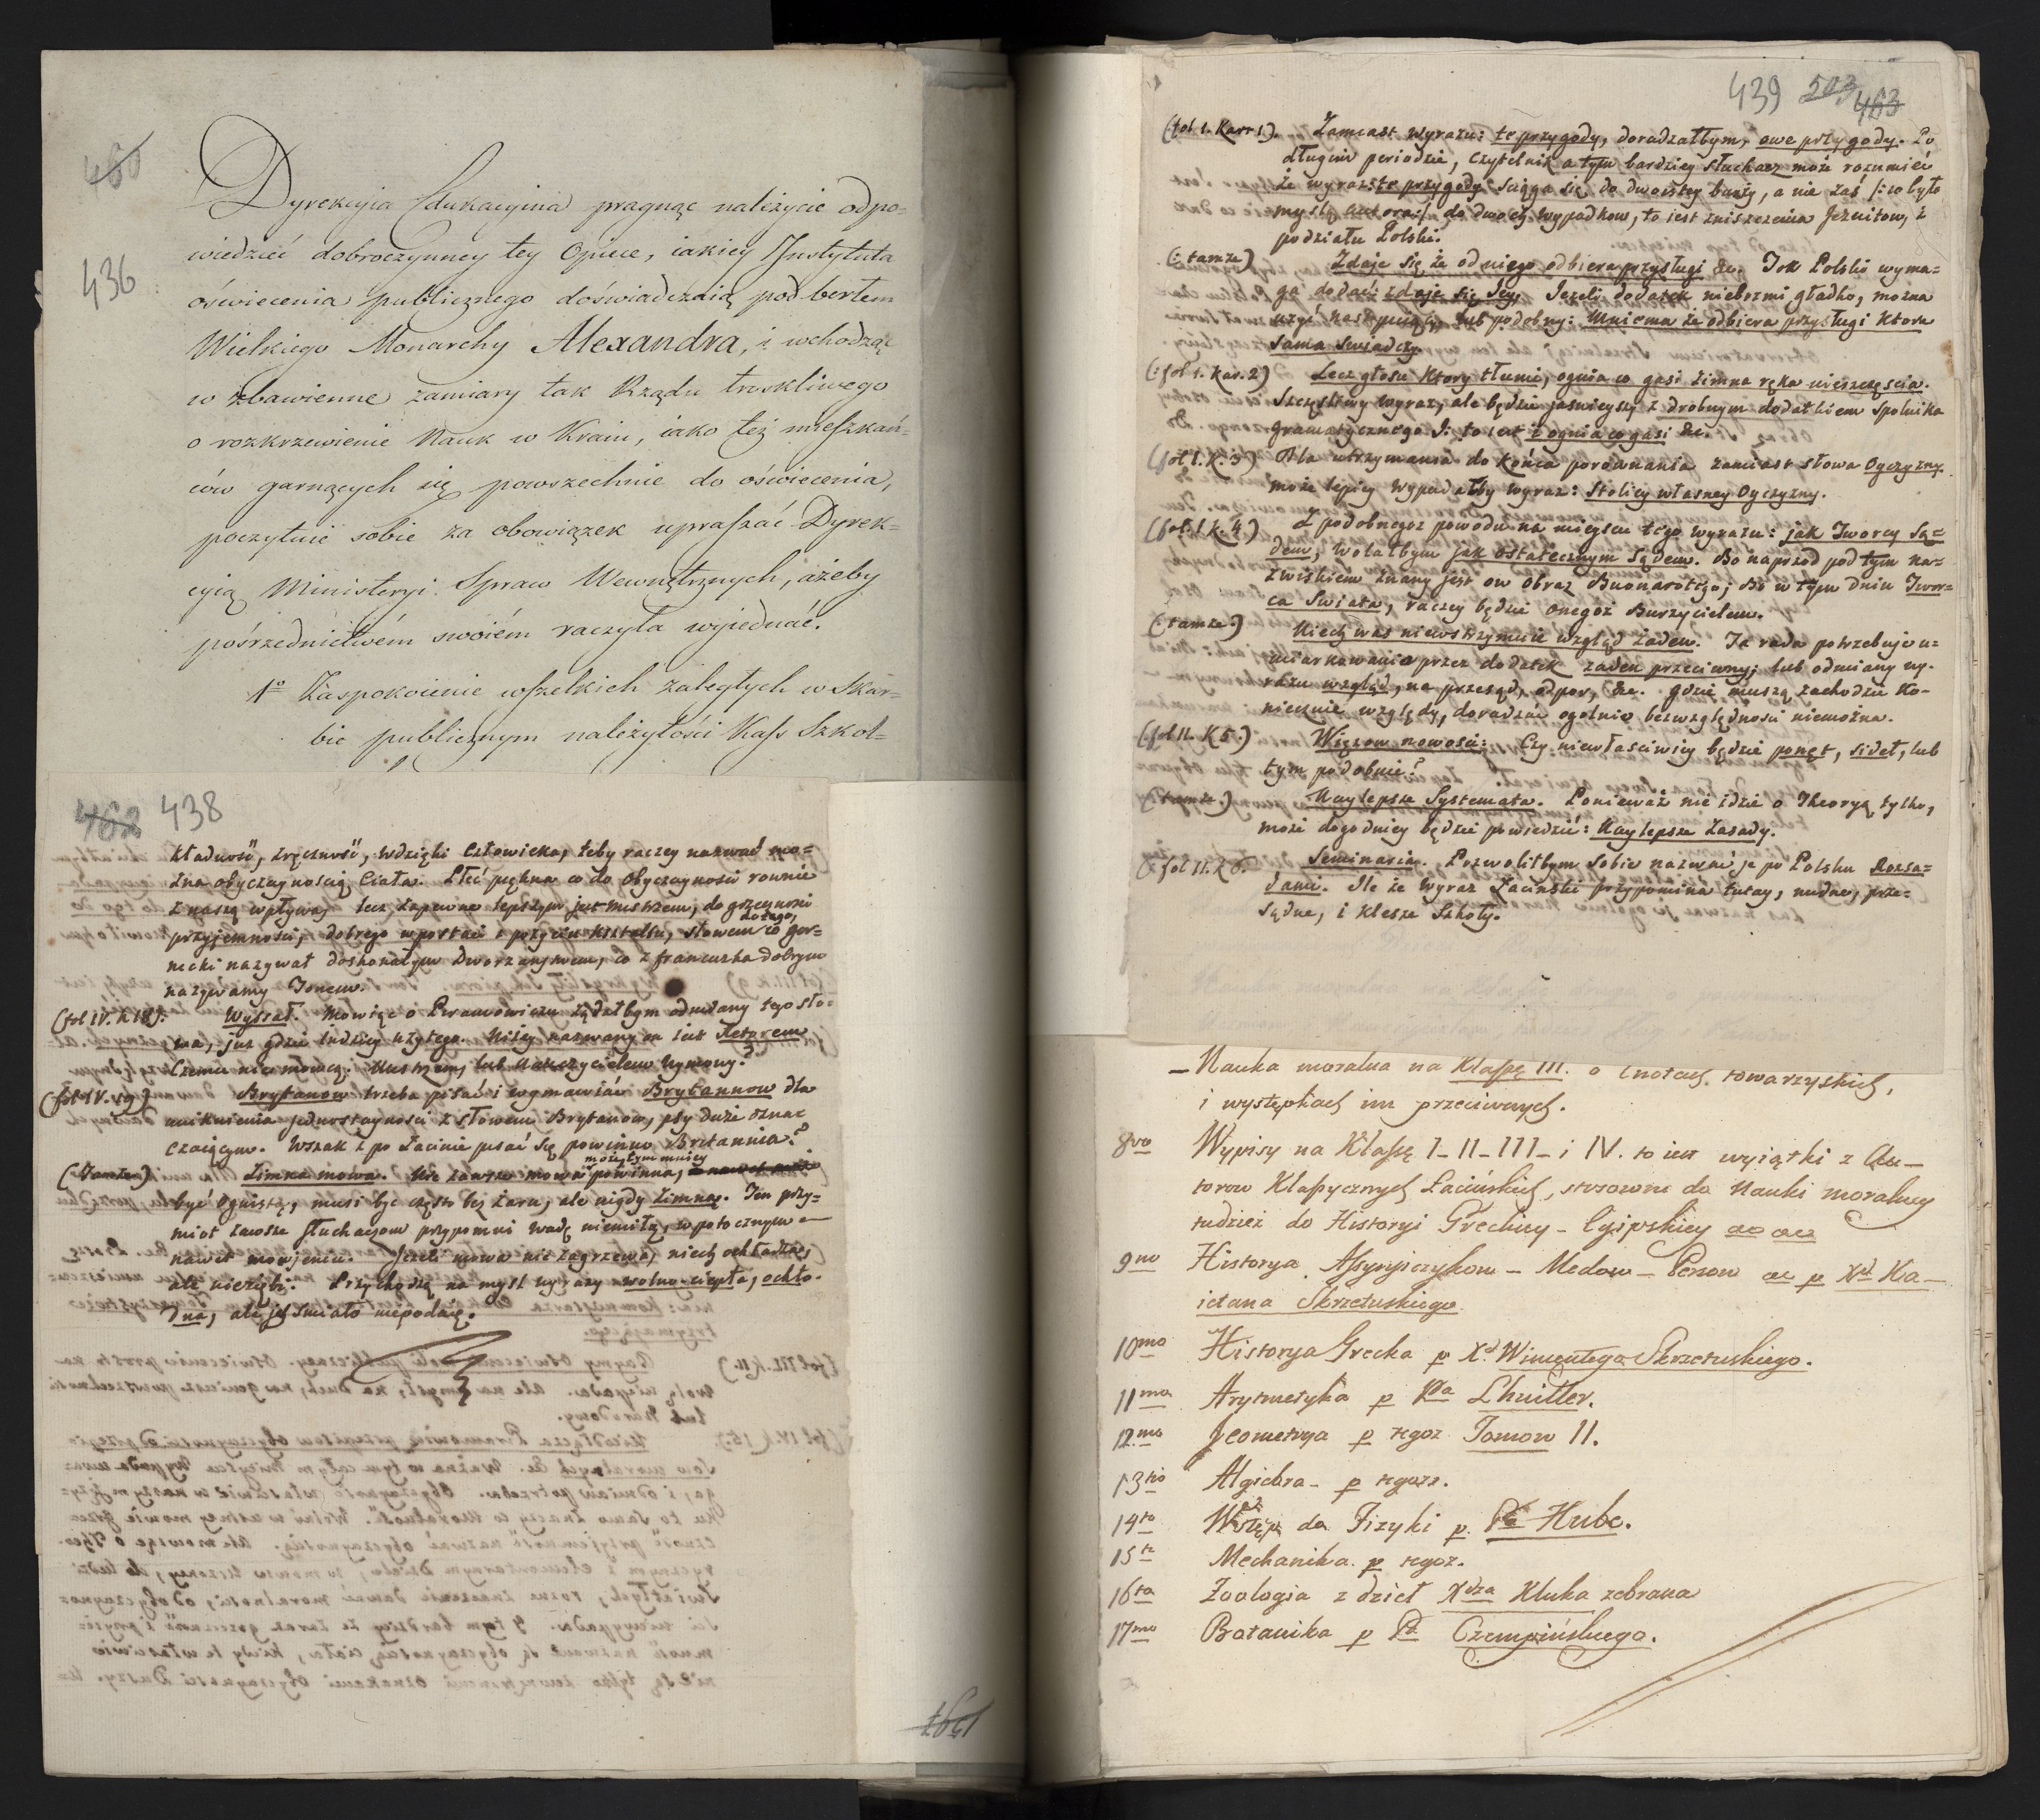 460
436
Dyrekcyia Edukacyina pragnąc należycie odpo=
wiedzieć dobroczynney tey Opiece, iakiey Instytuta
oświecenia publicznego doświadczaią pod berłem
Wielkiego Monarchy Alexandra, i wchodząc
w zbawienne zamiary tak Rządu troskliwego
o rozkrzewienie Nauk w Kraiu, iako też mieszkań=
ców garnących się powszechnie do oświecenia,
poczytuie sobie za obowiązek upraszać Dyrek=
cyią Ministeryi Spraw Wewnętrznych, ażeby
pośrzednictwém swoiém raczyła wyiednać.
1o Zaspokoienie wszelkich zaległych w Skar=
bie publicznym należytości Kass Szkol=
462 438
kładność, zręczność, wdzięki Człowieka, żeby raczey nazwać mo=
żna obyczaynością Ciała. Płeć piękna co do Obyczayności rownie
z naszą wpływa, lecz zapewne lepszym jest mistrzem, do grzeczności
przyjemności, dobrego w postaci i pożyciu kształtu, słowem do tego, co Gor=
nicki nazywał doskonałym Dworzaninem, co z francuska dobrym
nazywamy Tonem.
(fol IV. k 18). Wysłał. Mowiąc o Piramowiczu żądałbym odmiany tego sło=
wa, już gdzie indziey użytego. Niżey nazwany on jest Retorem
Czemu nie mowcą: Mistrzem, lub Nauczycielem Wymowy?
(fol IV. 19) Brytanow trzeba pisać i wymawiać Brytannow dla
uniknienia jednostayności z słowem Brytanow, psy duże oznac
czaiącym. Wszak i po Łacinie pisać się powinno Britannia?
(Tamże) Zimna mowa. Nie zawsze mowa może, tym mniey powinna,
być Ognistą, musi być często bez żaru, ale nigdy zimną. Ten przy=
miot zawsze słuchaczom przypomni wadę niemiłą, w potocznym
nawet mowieniu. Jeżeli mowa nie zagrzewa, niech ochładza,
ale nie ziębi. Przychodzą na myśl wyrazy wolno-ciepła, ochło=
dna, ale jéj śmiało niepodaię.
1597
439 503 463
(fol 1. Kart 1.). Zamiast wyrazu: te przygody, doradzałbym, owe przygody. Po
długim periodzie, Czytelnik a tym bardziey słuchacz może rozumieć
że wyraz: te przygody sciąga się do dwoistey burzy, a nie zaś /: co było
myślą autora :/ do dwoch wypadkow, to iest zniszczenia Jezuitow, i
podziału Polski.
(: tamże) Zdaje się że od niego odbiera przysługi &c. Tok Polski wyma=
ga dodać: zdaje się Jey. Jeżeli dodatek niebrzmi gładko, można
użyć następuiący lub podobny: Mniema że odbiera przysługi które
sama świadczy.
(: fol 1. kar. 2) Lecz głosu który tłumi, ognia co gasi zimna ręka nieszczęścia.
Szczęśliwy wyraz, ale będzie jaśnieyszy z drobnym dodatkiem Spoinika
gramatycznego I: to iest i ognia co gasi &c.
(fol 1. K. 3) Dla utrzymania do końca porównania zamiast słowa Oyczyzny.
może lepiey wypadałby wyraz: Stolicy własney Oyczyzny.
(fol: 1. k. 4) Z podobnegoż powodu na mieyscu tego wyrazu: jak Tworcy Są=
dem, wolałbym jak ostatecznym Sądem. Bo naprzod pod tym na=
zwiskiem znany jest ow obraz Buonarotego; Bo w tym dniu Twor=
ca Swiata, raczey będzie onegoż Burzycielem.
(: tamże.) Niech was niewstrzymuie wzgląd żaden. Ta rada potrzebuje u=
miarkowania przez dodatek żaden przeciwny; lub odmiany wy=
razu wzgląd, na przesąd, odpor, &c. gdzie muszą zachodzić ko=
niecznie względy, doradzać ogolnie bezwzględności niemożna.
(fol II. K 5.) Więzow nowości: Czy niewłaściwiey będzie ponęt, sideł, lub
tym podobnie?
(tamże.) Naylepsze Systemata. Ponieważ nie idzie o Theoryą tylko,
może dogodniey będzie powiedzieć: Naylepsze Zasady.
(: fol II. k 6. Seminaria. Pozwoliłbym sobie nazwać je po Polsku Rozsa=
dami. Ile że wyraz Łaciński przypomina tutay, nudne, prze=
sądne, i klesze Szkoły.
– Nauka moralna na Klassę III. o Cnotach towarzyskich,
i występkach im przeciwnych.
8vo Wypisy na Klassę I–II–III– i IV. to iest wyiątki z Au–
torow Klassycznych Łacińskich, stosowne do Nauki moralney
tudzież do Historyi Greckiey – Egipskiey &c &c
9no Historya Assyryiczykow – Medow – Persow &c p Xd Ka–
ietana Skrzetuskiego
10mo Historya Grecka p Xd Wincentego Skrzetuskiego.
11ma Arytmetyka p Pa Lhuiller.
12mo Jeometrya p tegoż Tomow II.
13tio Algiebra – p tegoż.
14to Wstęp do Fizyki p Pa Hube.
15te Mechanika p tegoż.
16ta Zoologia z dzieł Xdza Kluka zebrana
17mo Botanika p Pa Czempińskiego.